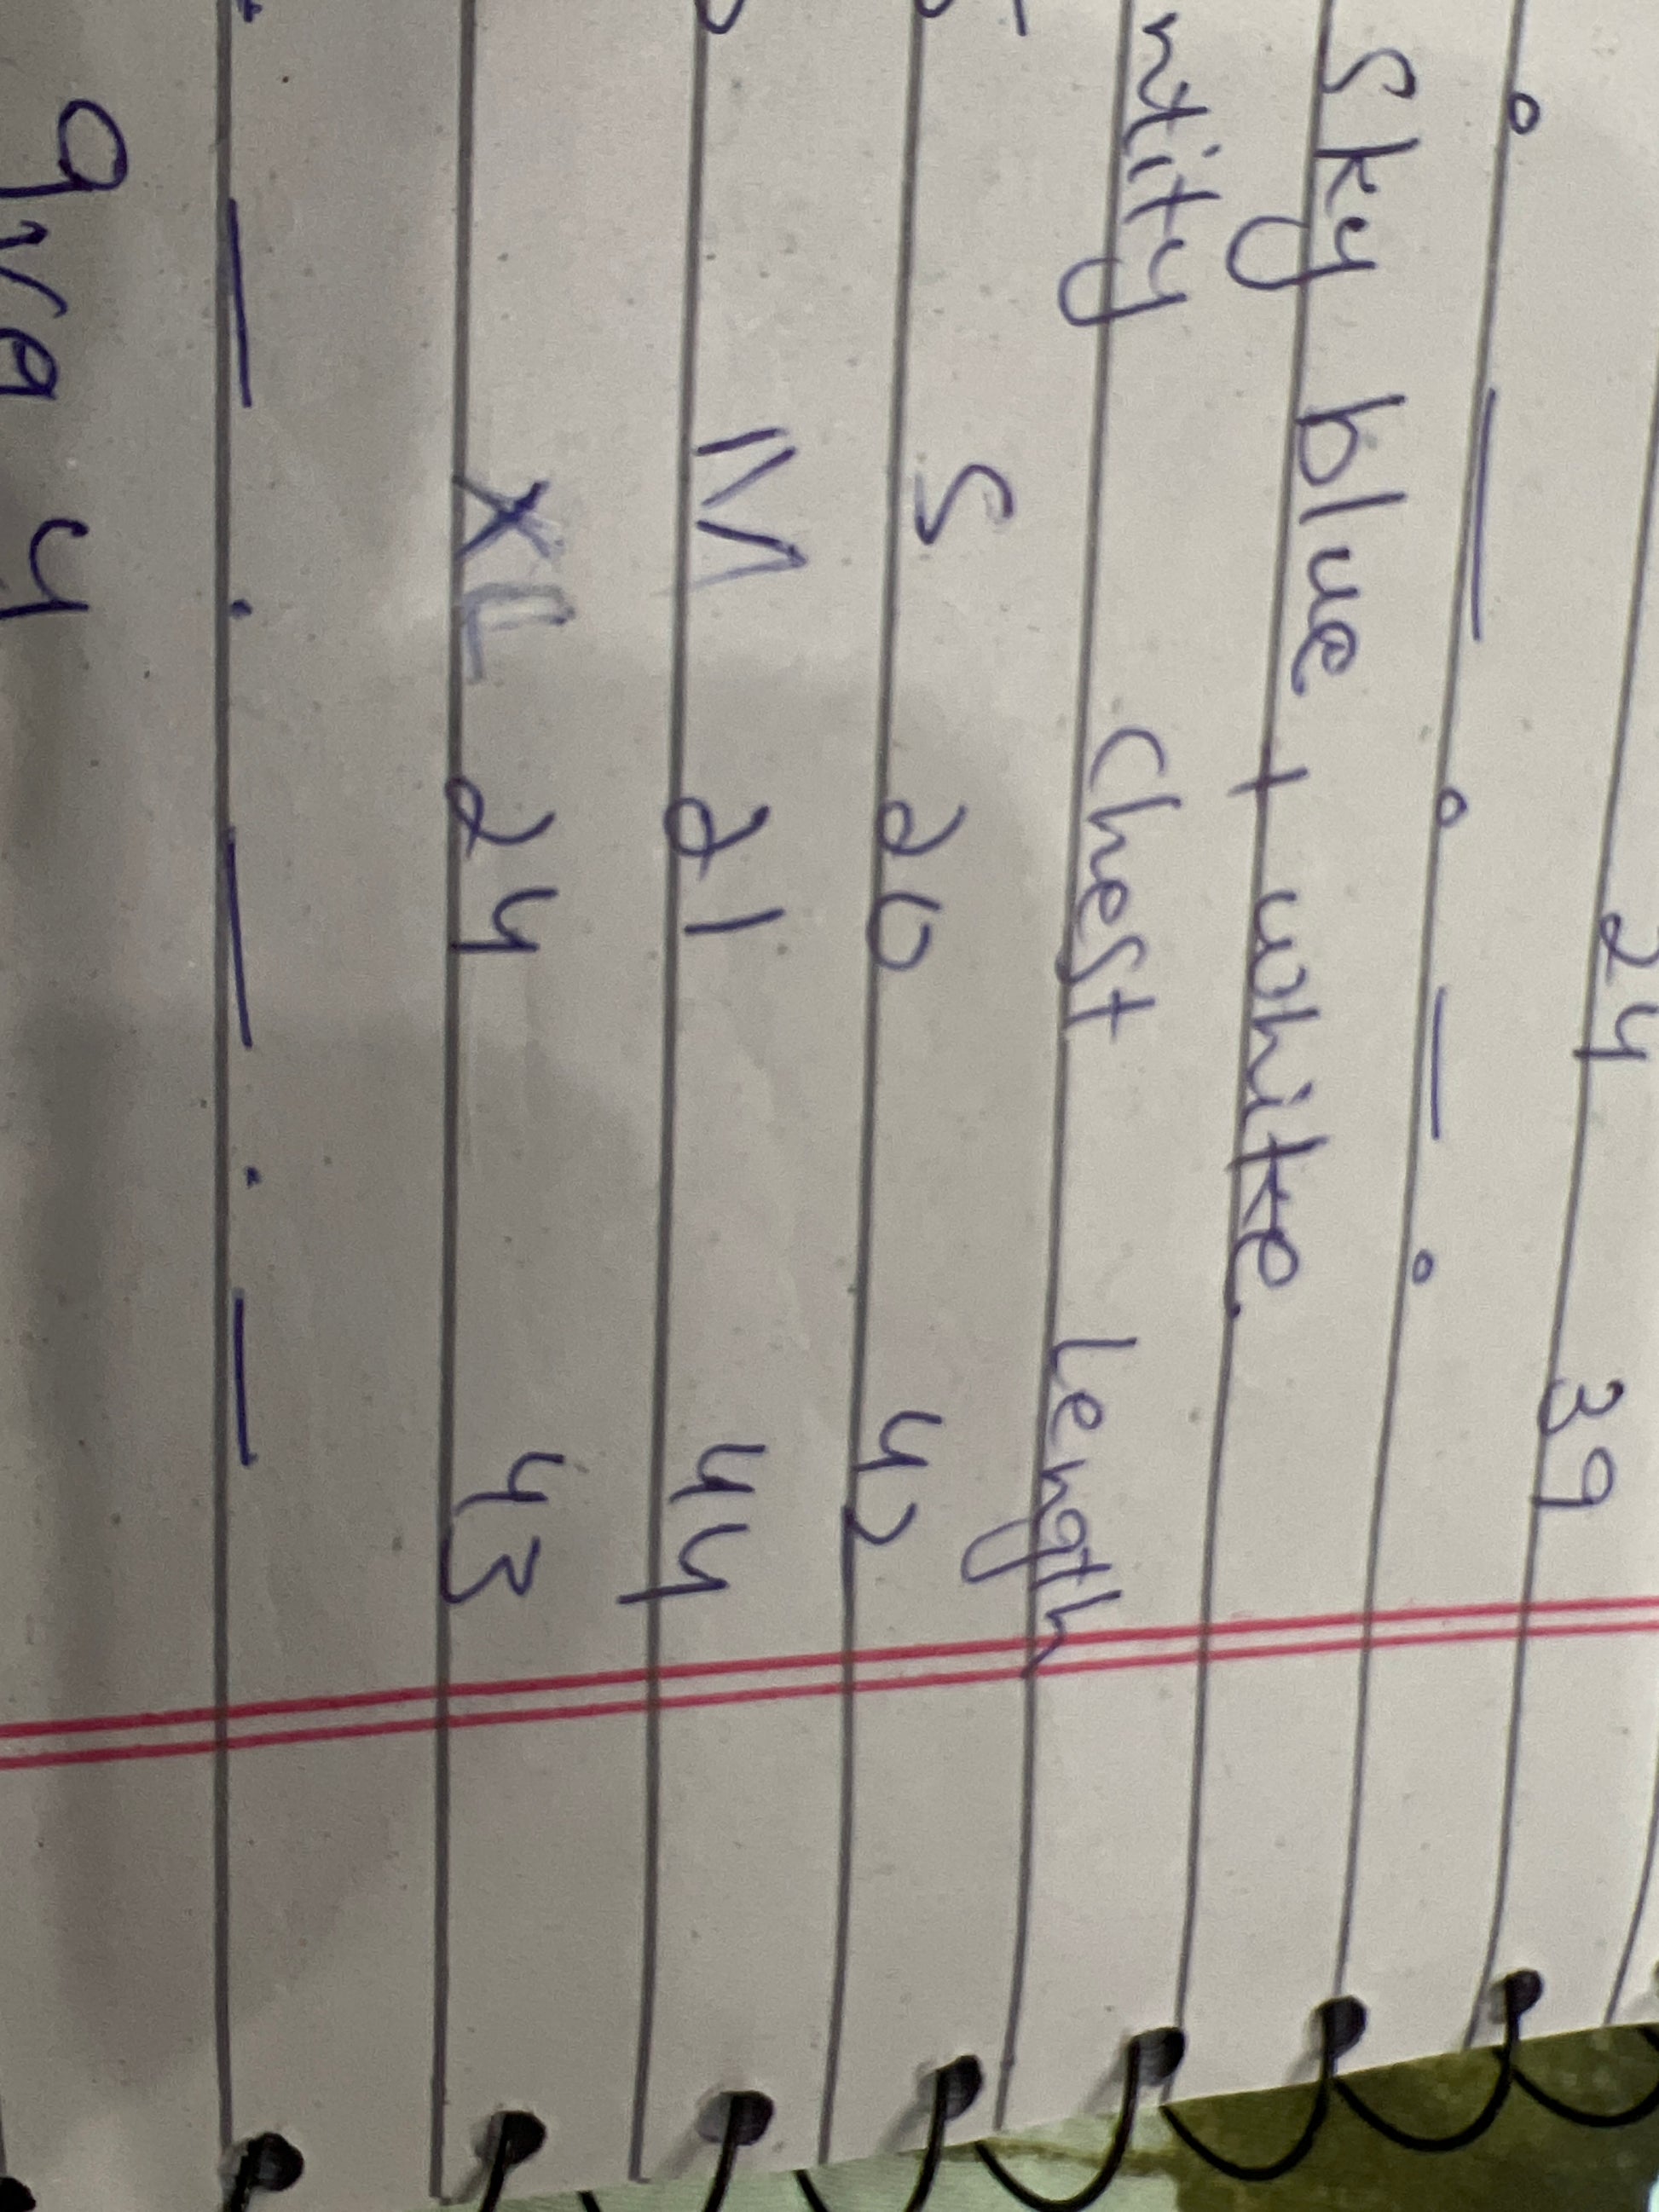 24 39
Sky blue + white.
ntity Chest Length
S 20 42
M 21 44
XL 24 43